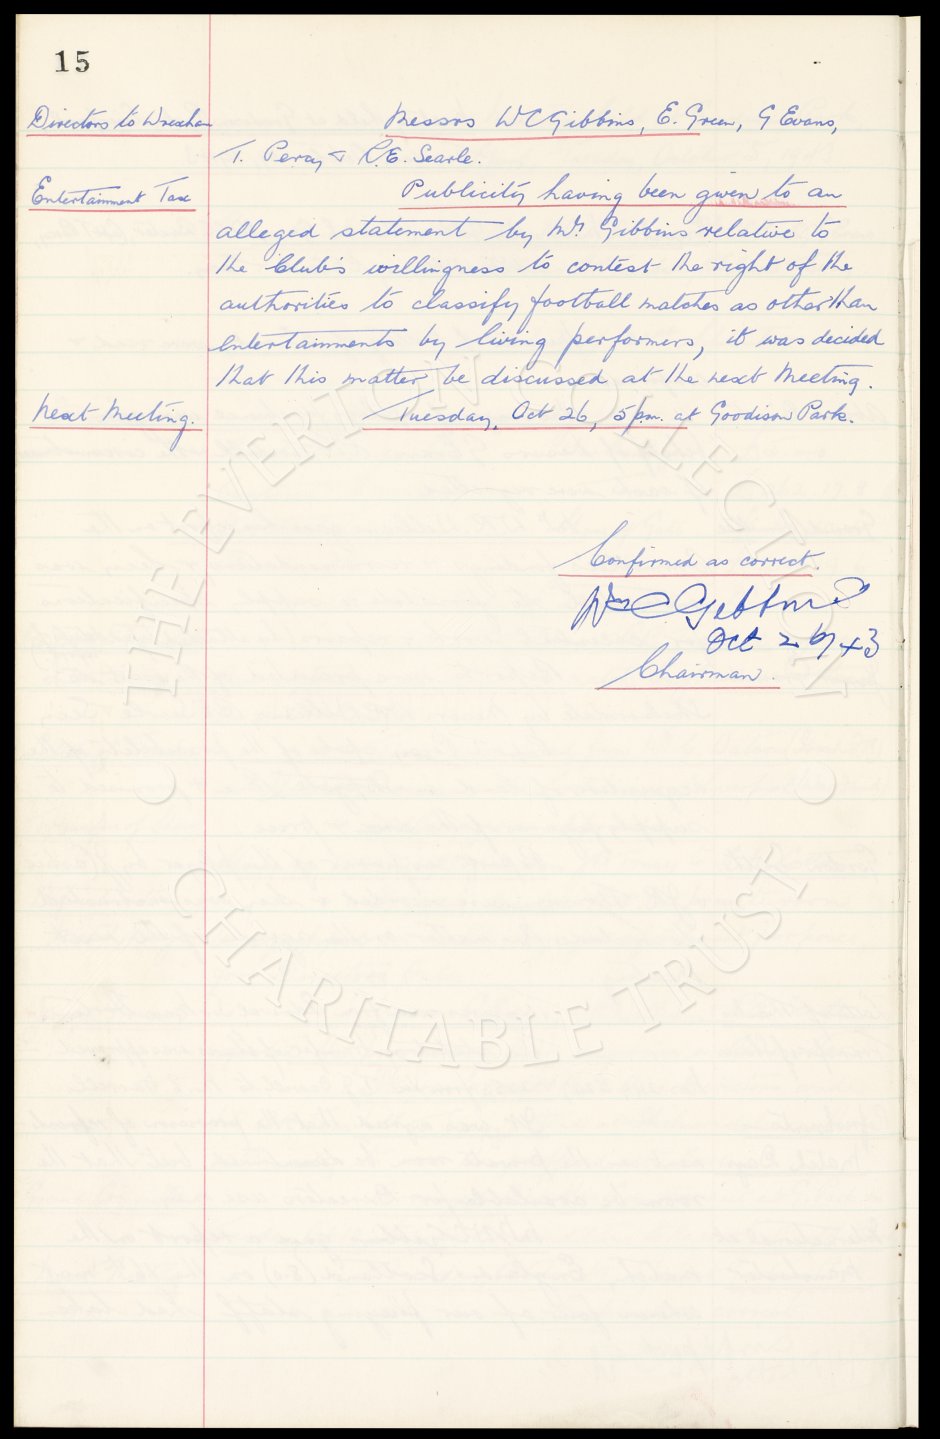 15
Directors to Wrexham Messrs W C Gibbins, E. Green, G Evans,
T. Percy & R.E. Searle.
Entertainment Tax Publicity having been given to an
alleged statement by Mr Gibbins relative to
the Club's willingness to contest the right of the
authorities to classify football matches as other than
entertainments by living performers, it was decided
that this matter be discussed at the next Meeting.
Next Meeting. Tuesday, Oct 26, 5 p.m. at Goodison Park.
Confirmed as correct.
Wm C Gibbins
Oct 26/43
Chairman.
© THE EVERTON COLLECTION
CHARITABLE TRUST